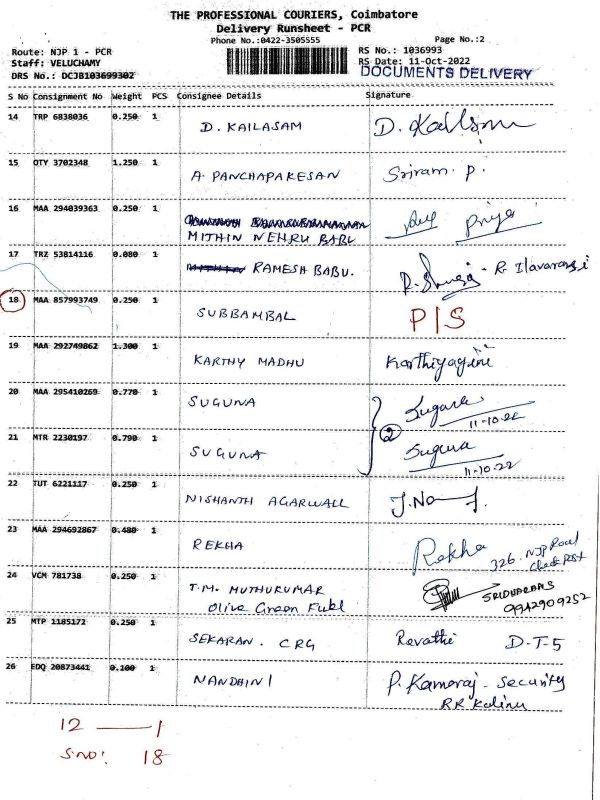 THE PROFESSIONAL COURIERS, Coimbatore
Delivery Runsheet - PCR
Phone No.:0422-3505555
Page No.:2
Route: NJP 1 - PCR
RS No.: 1036993
Staff: VELUCHAMY
RS Date: 11-Oct-2022
DRS No.: DCJB103699302
DOCUMENTS DELIVERY
S No Consignment No Weight PCS Consignee Details Signature
14 TRP 6838036 0.250 1 D. KAILASAM D. Kailsam
15 OTY 3702348 1.250 1 A. PANCHAPAKESAN Sriram. P.
16 MAA 294039363 0.250 1 Priya
MITHIN NEHRU BABU
17 TRZ 53814116 0.080 1 RAMESH BABU. R. Ilavarasi
18 MAA 857993749 0.250 1 SUBBAMBAL P|S
19 MAA 292749862 1.300 1 KARTHY MADHU Karthiyagini
20 MAA 295410269 0.770 1 SUGUNA Suguna
11-10-22
2
21 MTR 2230197 0.790 1 SUGUNA Suguna
11-10-22
22 TUT 6221117 0.250 1 NISHANTH AGARWALL
23 MAA 294692867 0.480 1 REKHA Rekha 326, NJP Road
Check Post
24 VCM 781738 0.250 1 T.M. MUTHUKUMAR SRIDHARAN S
Olive Green Fuel 9942909252
25 MTP 1185171 0.250 1 SEKARAN. CRG Revathi D-T-5
26 EDQ 20873441 0.100 1 NANDHINI P. Kamaraj - Security
RR
12 — 1
S.NO: 18